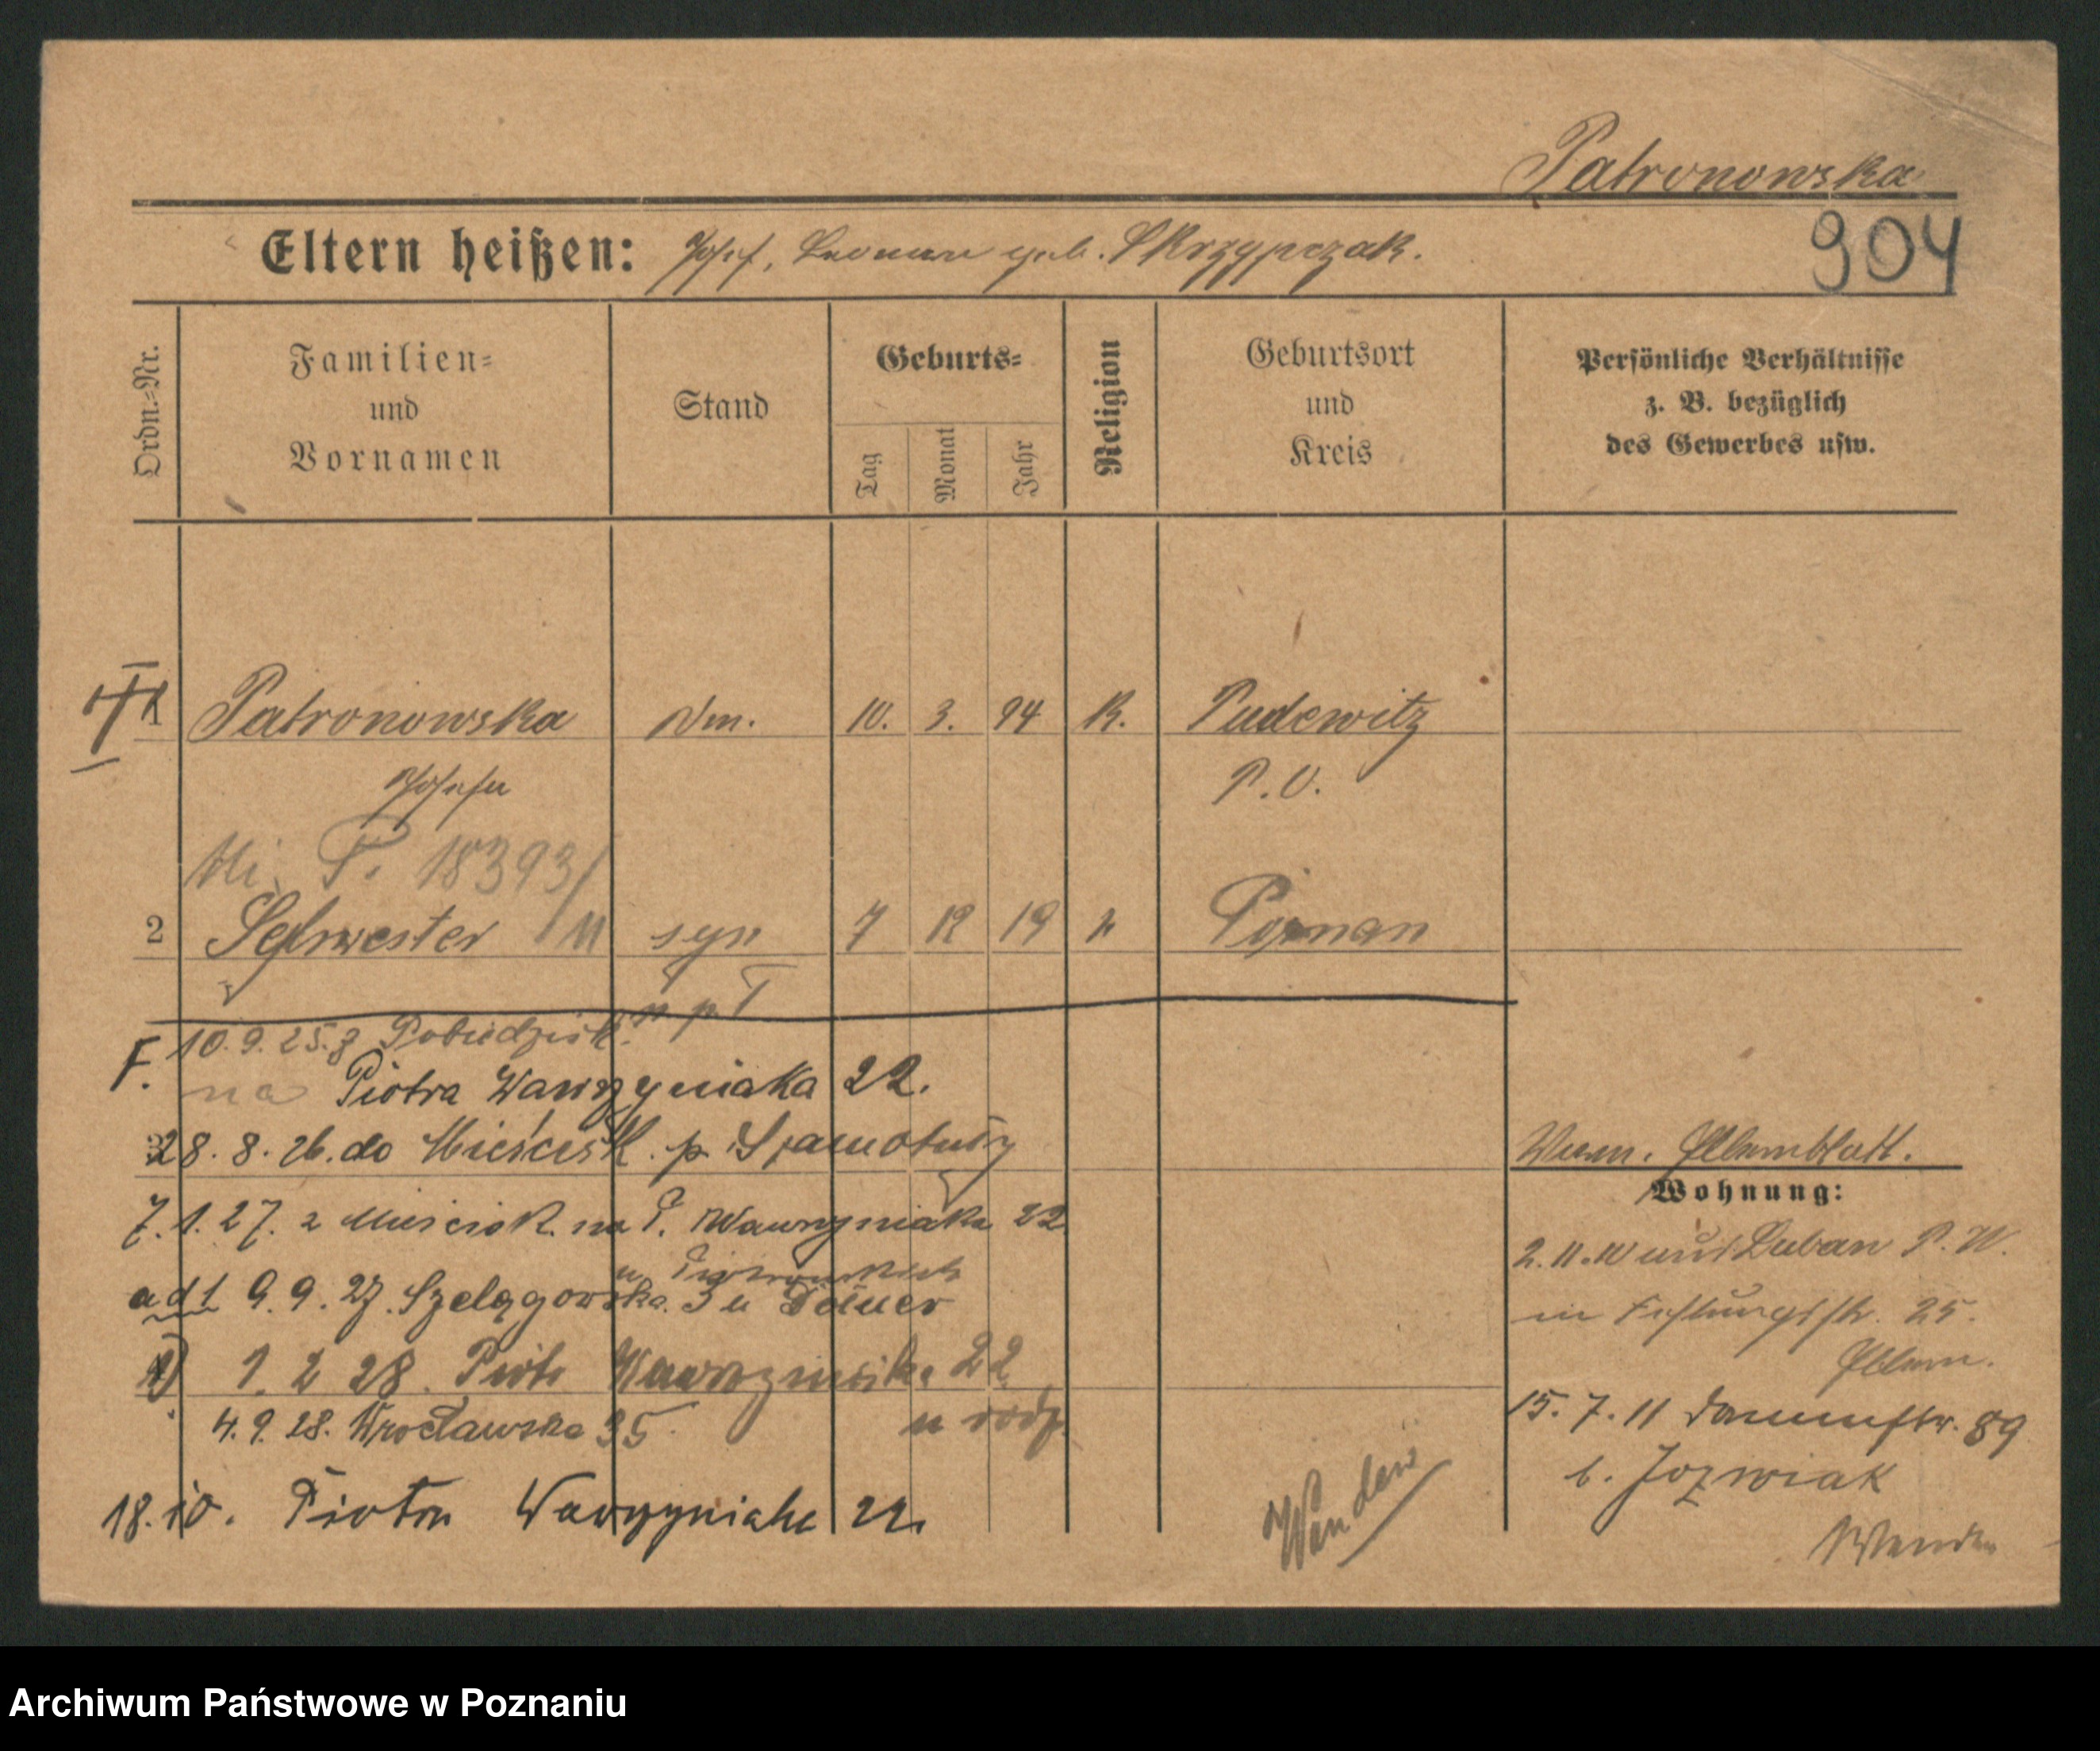 Patronowska
Eltern heißen: Josef, geb. Skrzypczak.
904
Ordn.-Nr.
Familien-
und
Vornamen
Stand
Geburts-
Tag
Monat
Jahr
Religion
Geburtsort
und
Kreis
Persönliche Verhältnisse
z. B. bezüglich
des Gewerbes usw.
1 Patronowska 10. 3. 94 K. Pudewitz
Josefa P. O.
18393/11
2 Sylwester syn 7 12 19 k Poznan
F. 10.9.25. z Pobiedzisk.
na Piotra Wawrzyniaka 22.
28. 8. 26. do Mieścisk. p. Szamotuły
7. 1. 27. z Mieścisk. na P. Wawrzyniaka 22
ad 1 9. 9. 27. Szelągowska. 3 u
1) 1. 2 28. Piotr Wawrzyniaka 22
u rodz.
4. 9. 28. Wrocławska 35
18. 10. Piotra Wawrzyniaka 22.
Elternblatt.
Wohnung:
2. 11. 10 aus Luban P. W.
in Festungsstr. 25.
Eltern.
15. 7. 11 Dammstr. 89
b. Jozwiak
Archiwum Państwowe w Poznaniu